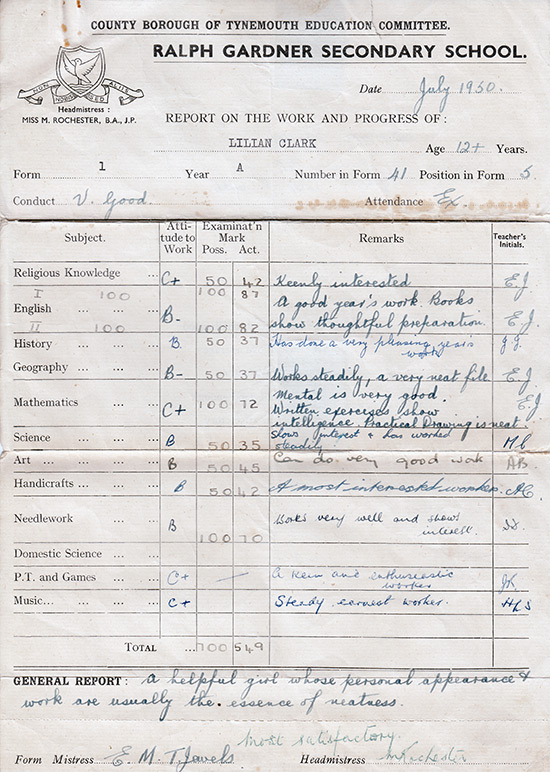 COUNTY BOROUGH OF TYNEMOUTH EDUCATION COMMITTEE.
RALPH GARDNER SECONDARY SCHOOL.
Date July 1950.
Headmistress :
MISS M. ROCHESTER, B.A., J.P.
REPORT ON THE WORK AND PROGRESS OF :
LILIAN CLARK Age 12+ Years.
Form 1 Year A Number in Form 41 Position in Form 5
Conduct V. Good. Attendance Ex.
Subject. Atti-tude to Work Examinat'n Mark Poss. Act. Remarks Teacher's Initials.
Religious Knowledge ... C+ 50 42 Keenly interested E.J.
I 100 100 87 A good year's work. Books
English ... ... B- show thoughtful preparation. E.J.
II 100 100 82
History ... ... B. 50 37 Has done a very pleasing year's
work J.J.
Geography ... ... B- 50 37 Works steadily, a very neat file E.J.
Mental is very good.
Mathematics ... ... C+ 100 72 Written exercises show E.J.
intelligence. Practical Drawing is neat.
Science ... ... B 50 35 Shows interest & has worked
steadily. M.C.
Art ... ... ... ... B 50 45 Can do very good work AB
Handicrafts ... ... B 50 42 A most interested worker. A.C.
Needlework ... ... B 100 70 Works very well and shows
interest.
Domestic Science ... ...
P.T. and Games ... ... C+ — A keen and enthusiastic
worker JK
Music... ... ... ... C+ Steady earnest worker. HLS
TOTAL ... 700 549
GENERAL REPORT : A helpful girl whose personal appearance &
work are usually the essence of neatness.
Most satisfactory.
Form Mistress E. M. T. Jewels Headmistress M Rochester